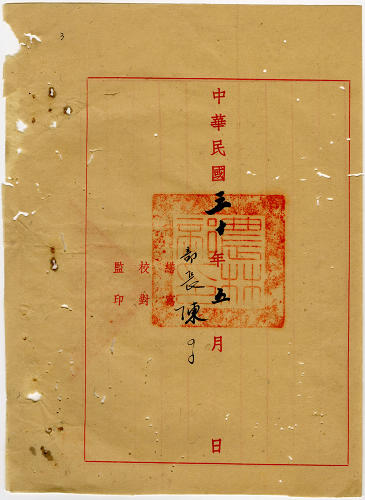 3
中華民國三十年五月 日
部長陳
繕寫
校對
監印